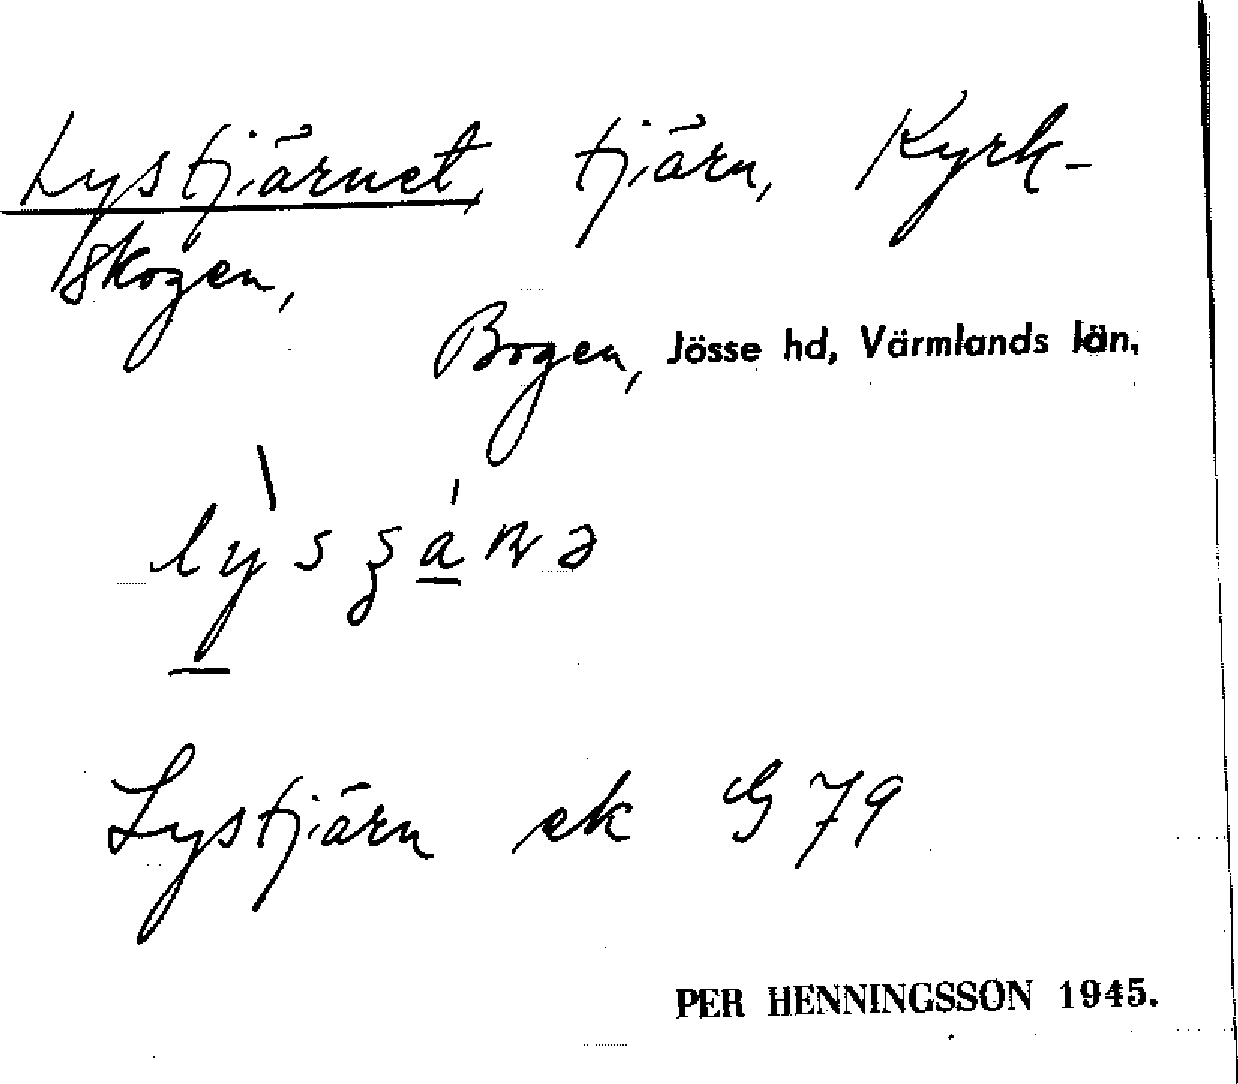 Lystjärnet, tjärn, Kyrk-
skogen,
Bogen, Jösse hd, Värmlands län.
Lystjärn ek G 79
PER HENNINGSSON 1945.